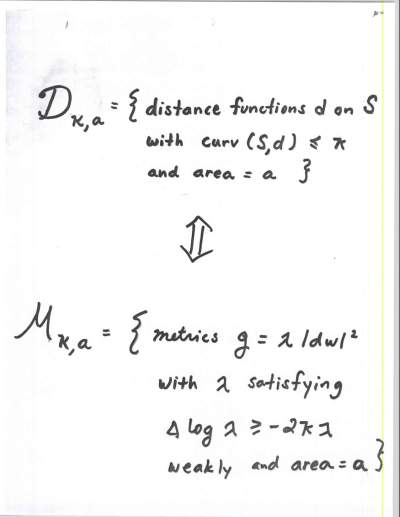 𝒟_κ,a = { distance functions d on S
with curv (S,d) ≤ κ
and area = a }
⇕
ℳ_κ,a = { metrics g = λ |dw|²
with λ satisfying
Δ log λ ≥ -2κλ
weakly and area = a }